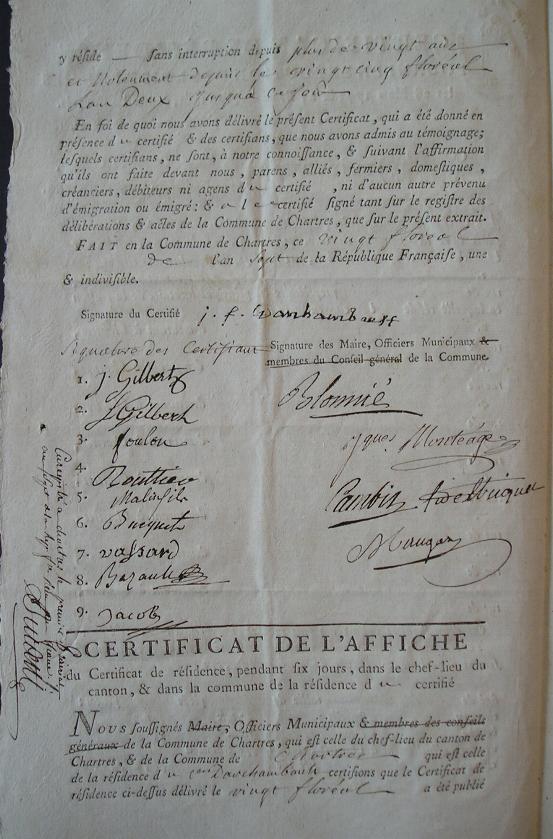 y réside — sans interruption depuis plus de vingt ans
et notamment depuis le vingt cinq floréal
L'an Deux jusqu'à ce jour
En foi de quoi nous avons délivré le présent Certificat, qui a été donné en
présence du certifié & des certifians, que nous avons admis au témoignage;
lesquels certifians, ne sont, à notre connoissance, & suivant l'affirmation
qu'ils ont faite devant nous, parens, alliés, fermiers, domestiques,
créanciers, débiteurs ni agens du certifié, ni d'aucun autre prévenu
d'émigration ou émigré: & a le certifié signé tant sur le registre des
délibérations & actes de la Commune de Chartres, que sur le présent extrait.
FAIT en la Commune de Chartres, ce vingt floréal
de l'an sept de la République Française, une
& indivisible.
Signature du Certifié j. f.
Signature des Certifians
Signature des Maire, Officiers Municipaux &
membres du Conseil général de la Commune.
1. j. Gilbert
2. Gilbert
3. foulon
4.
5.
6. Bucquet
7. vassard
8. Bazault
9. Jacob
Blonnié
Maugar
CERTIFICAT DE L'AFFICHE
du Certificat de résidence, pendant six jours, dans le chef-lieu du
canton, & dans la commune de la résidence du certifié
NOUS soussignés Maire, Officiers Municipaux & membres des conseils
généraux de la Commune de Chartres, qui est celle du chef-lieu du canton de
Chartres, & de la Commune de Chartres qui est celle
de la résidence du cen Darchambault certifions que le Certificat de
résidence ci-dessus délivré le vingt floréal a été publié